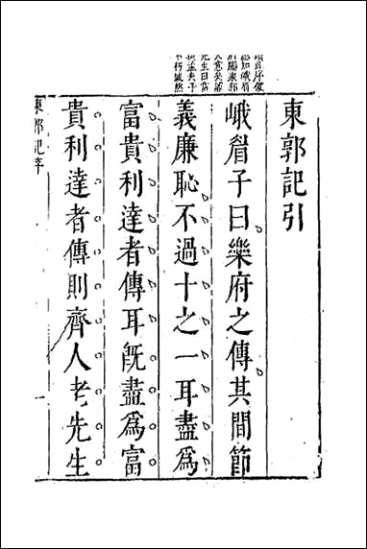 東郭記引
峨眉子曰樂府之傳其間節
義廉恥不過十之一耳盡為
富貴利達者傳耳既盡為富
貴利達者傳則齊人老先生
東郭記
一